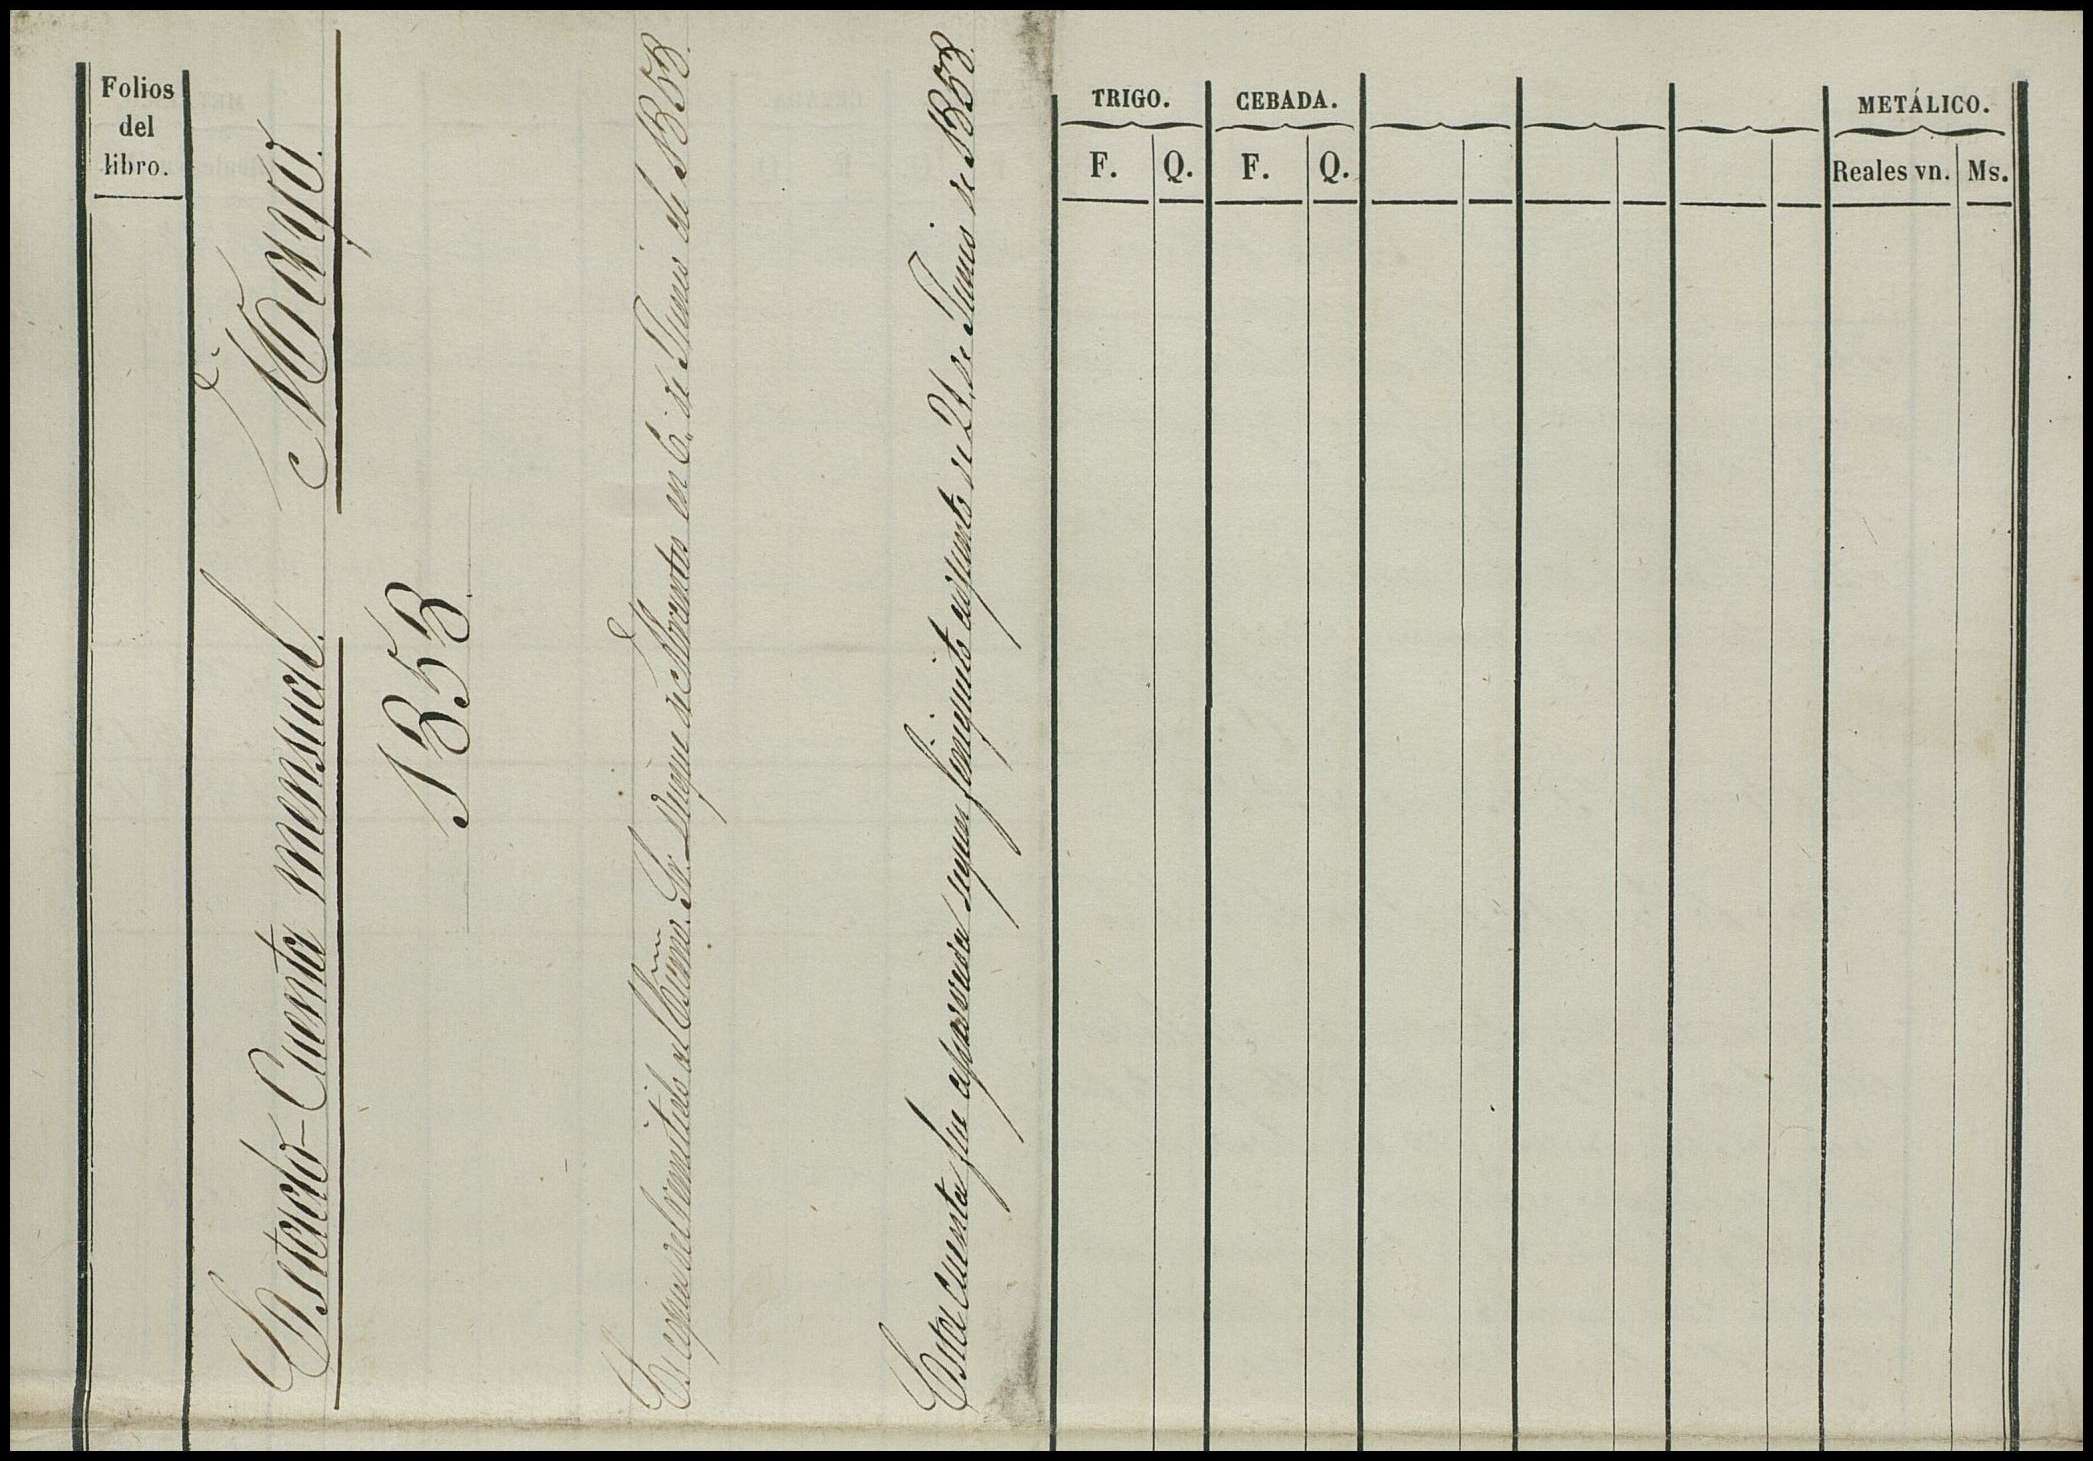 Folios
del
libro.
Estado-Cuenta mensual. Mayo.
1858.
Es copia del remitido al Excmo. Sr. Duque de Abrantes en 6. de Junio de 1858.
Esta Cuenta fue aprovada segun finiquito adjunto de de Junio de 1858.
TRIGO. CEBADA. METÁLICO.
F. Q. F. Q. Reales vn. Ms.